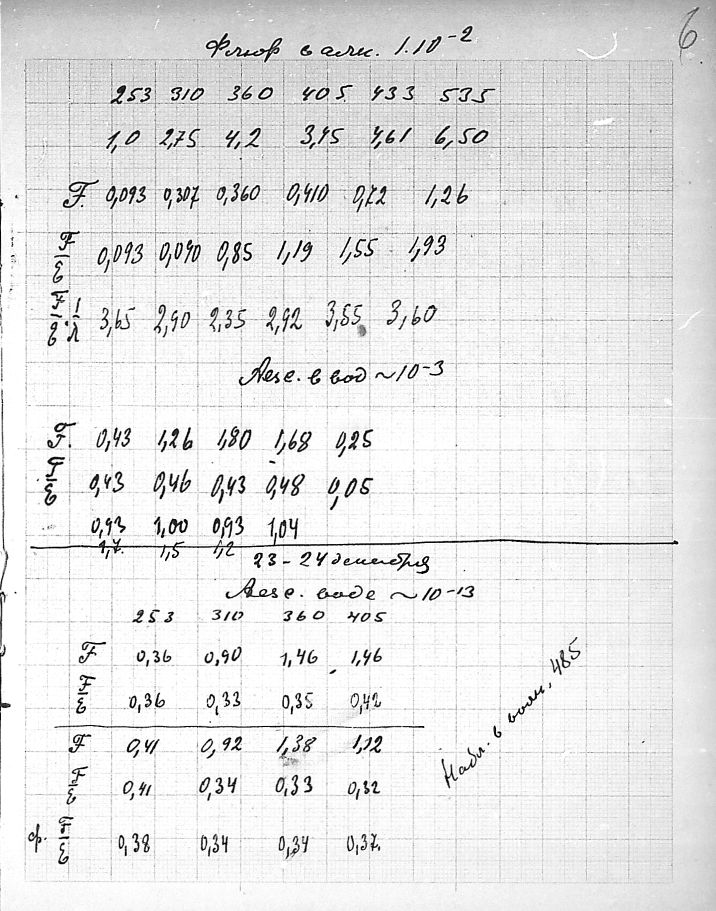 6
Флюор в алк. 1.10⁻²
253 310 360 405 433 535
1,0 2,75 4,2 3,45 4,61 6,50
F. 0,093 0,307 0,360 0,410 0,72 1,26
F/E 0,093 0,090 0,85 1,19 1,55 1,93
F/E · 1/λ 3,65 2,90 2,35 2,92 3,55 3,60
Aesc. в вод ~ 10⁻³
F. 0,43 1,26 1,80 1,68 0,25
F/E 0,43 0,46 0,43 0,48 0,05
0,93 1,00 0,93 1,04
1,7 1,5 1,2
23 - 24 декабря
Aesc. воде ~ 10⁻¹³
253 310 360 405
F 0,36 0,90 1,46 1,46
F/E 0,36 0,33 0,35 0,42
F 0,41 0,92 1,38 1,12
F/E 0,41 0,34 0,33 0,32
ф. F/E 0,38 0,34 0,34 0,37.
Набл. в 485